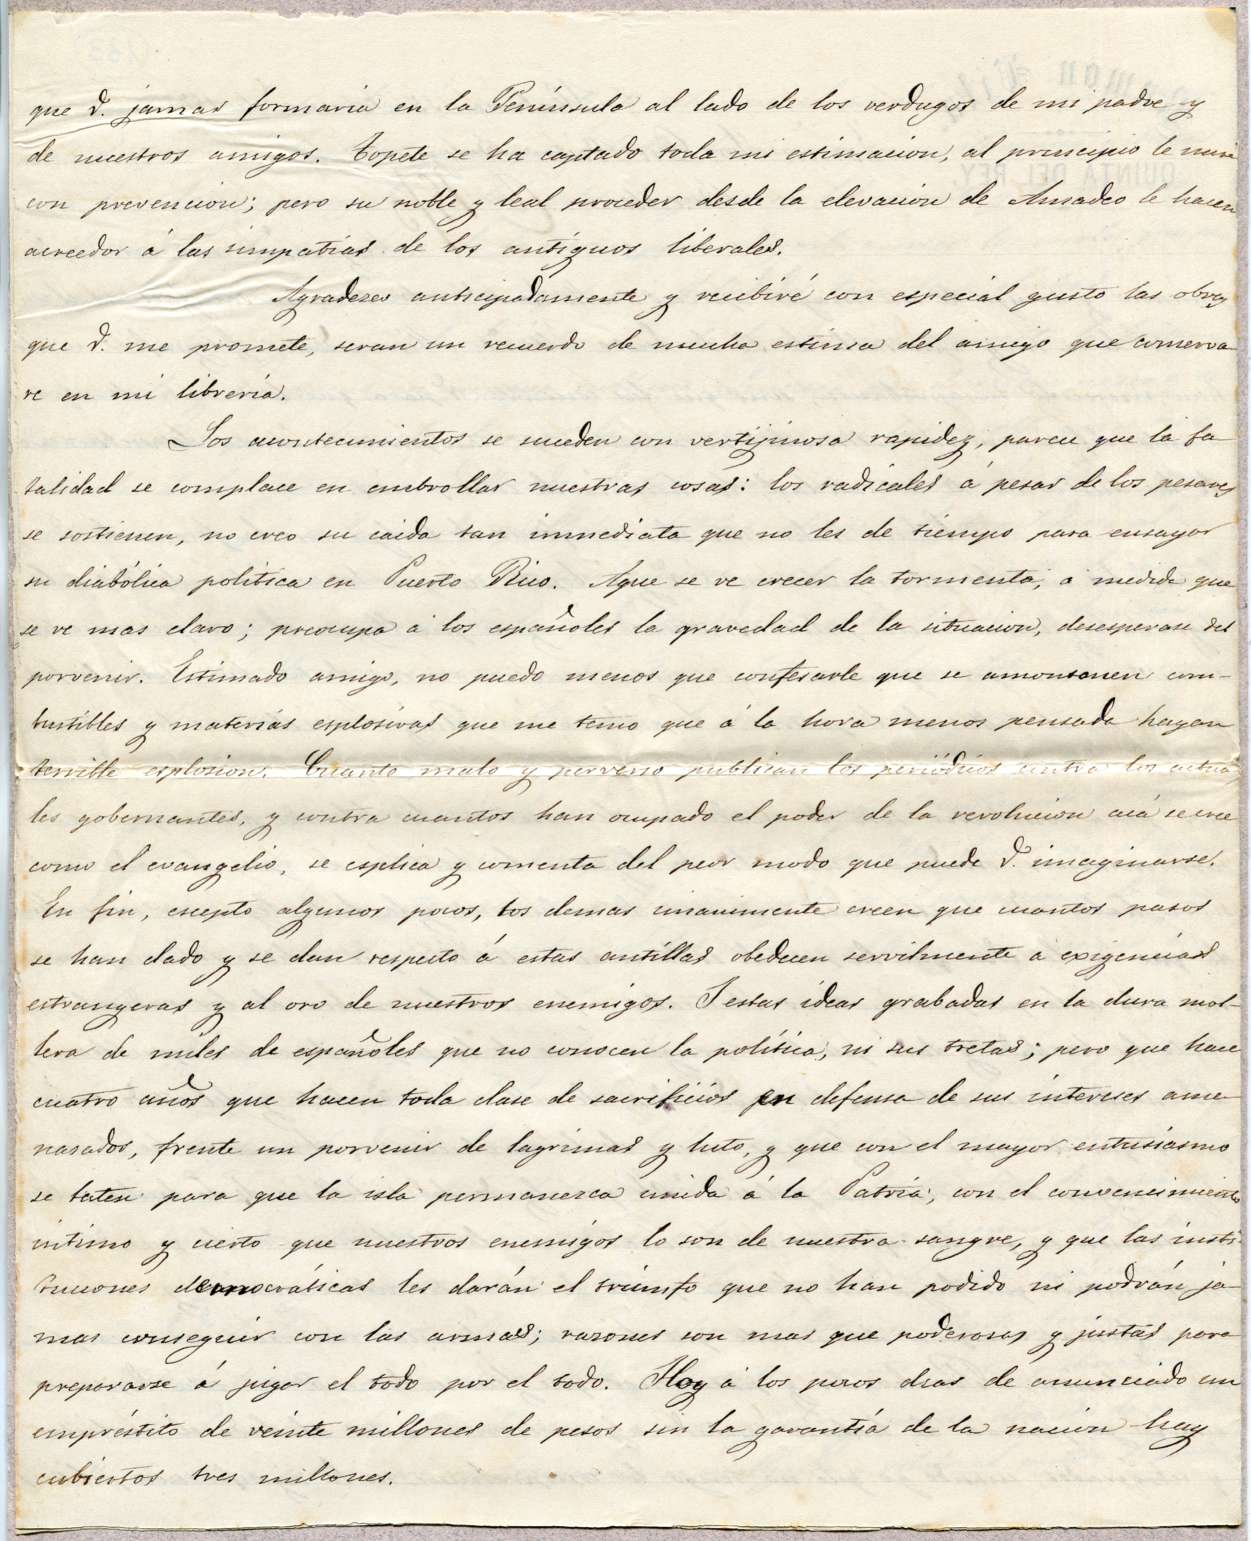 que V. jamas formaria en la Península al lado de los verdugos de mi padre y
de nuestros amigos. Topete se ha captado toda mi estimacion, al principio le miré
con prevencion; pero su noble y leal proceder desde la elevacion de Amadeo le hacen
acreedor á las simpatías de los antíguos liberales.
Agradezco anticipadamente y recibiré con especial gusto las obras
que V. me promete, seran un recuerdo de mucha estima del amigo que conserva
re en mi librería.
Los acontecimientos se suceden con vertijinosa rapidez, parece que la fa
talidad se complace en embrollar nuestras cosas: los radicales á pesar de los pesares
se sostienen, no creo su caida tan inmediata que no les de tiempo para ensayar
su diabólica política en Puerto Rico. Aqui se ve crecer la tormenta, a medida que
se ve mas claro; preocupa a los españoles la gravedad de la situacion, desesperase del
porvenir. Estimado amigo, no puedo menos que confesarle que se amontonen com-
bustibles y materias esplosivas que me temo que á la hora menos pensada hagan
terrible esplosion. Cuanto malo y perverso publican los periódicos contra los actua
les gobernantes, y contra cuantos han ocupado el poder de la revolucion acá se cree
como el evangelio, se esplica y comenta del peor modo que puede V. imaginarse.
En fin, escepto algunos pocos, los demas unanimente creen que cuantos pasos
se han dado y se dan respecto á estas antillas obedecen servilmente a exigencias
estrangeras y al oro de nuestros enemigos. I estas ideas grabadas en la dura mol-
lera de miles de españoles que no conocen la política, ni sus tretas; pero que hace
cuatro años que hacen toda clase de sacrificios en defensa de sus intereses ame
nasados, frente un porvenir de lagrimas y luto, y que con el mayor entusiasmo
se baten para que la isla permanezca unida á la Patria, con el convencimiento
intimo y cierto que nuestros enemigos lo son de nuestra sangre, y que las insti-
tuciones democráticas les darán el triunfo que no han podido ni podrán ja-
mas conseguir con las armas; razones son mas que poderosas y justas para
prepararse á jugar el todo por el todo. Hoy á los pocos dias de anunciado un
empréstito de veinte millones de pesos sin la garantía de la nacion hay
cubiertos tres millones.